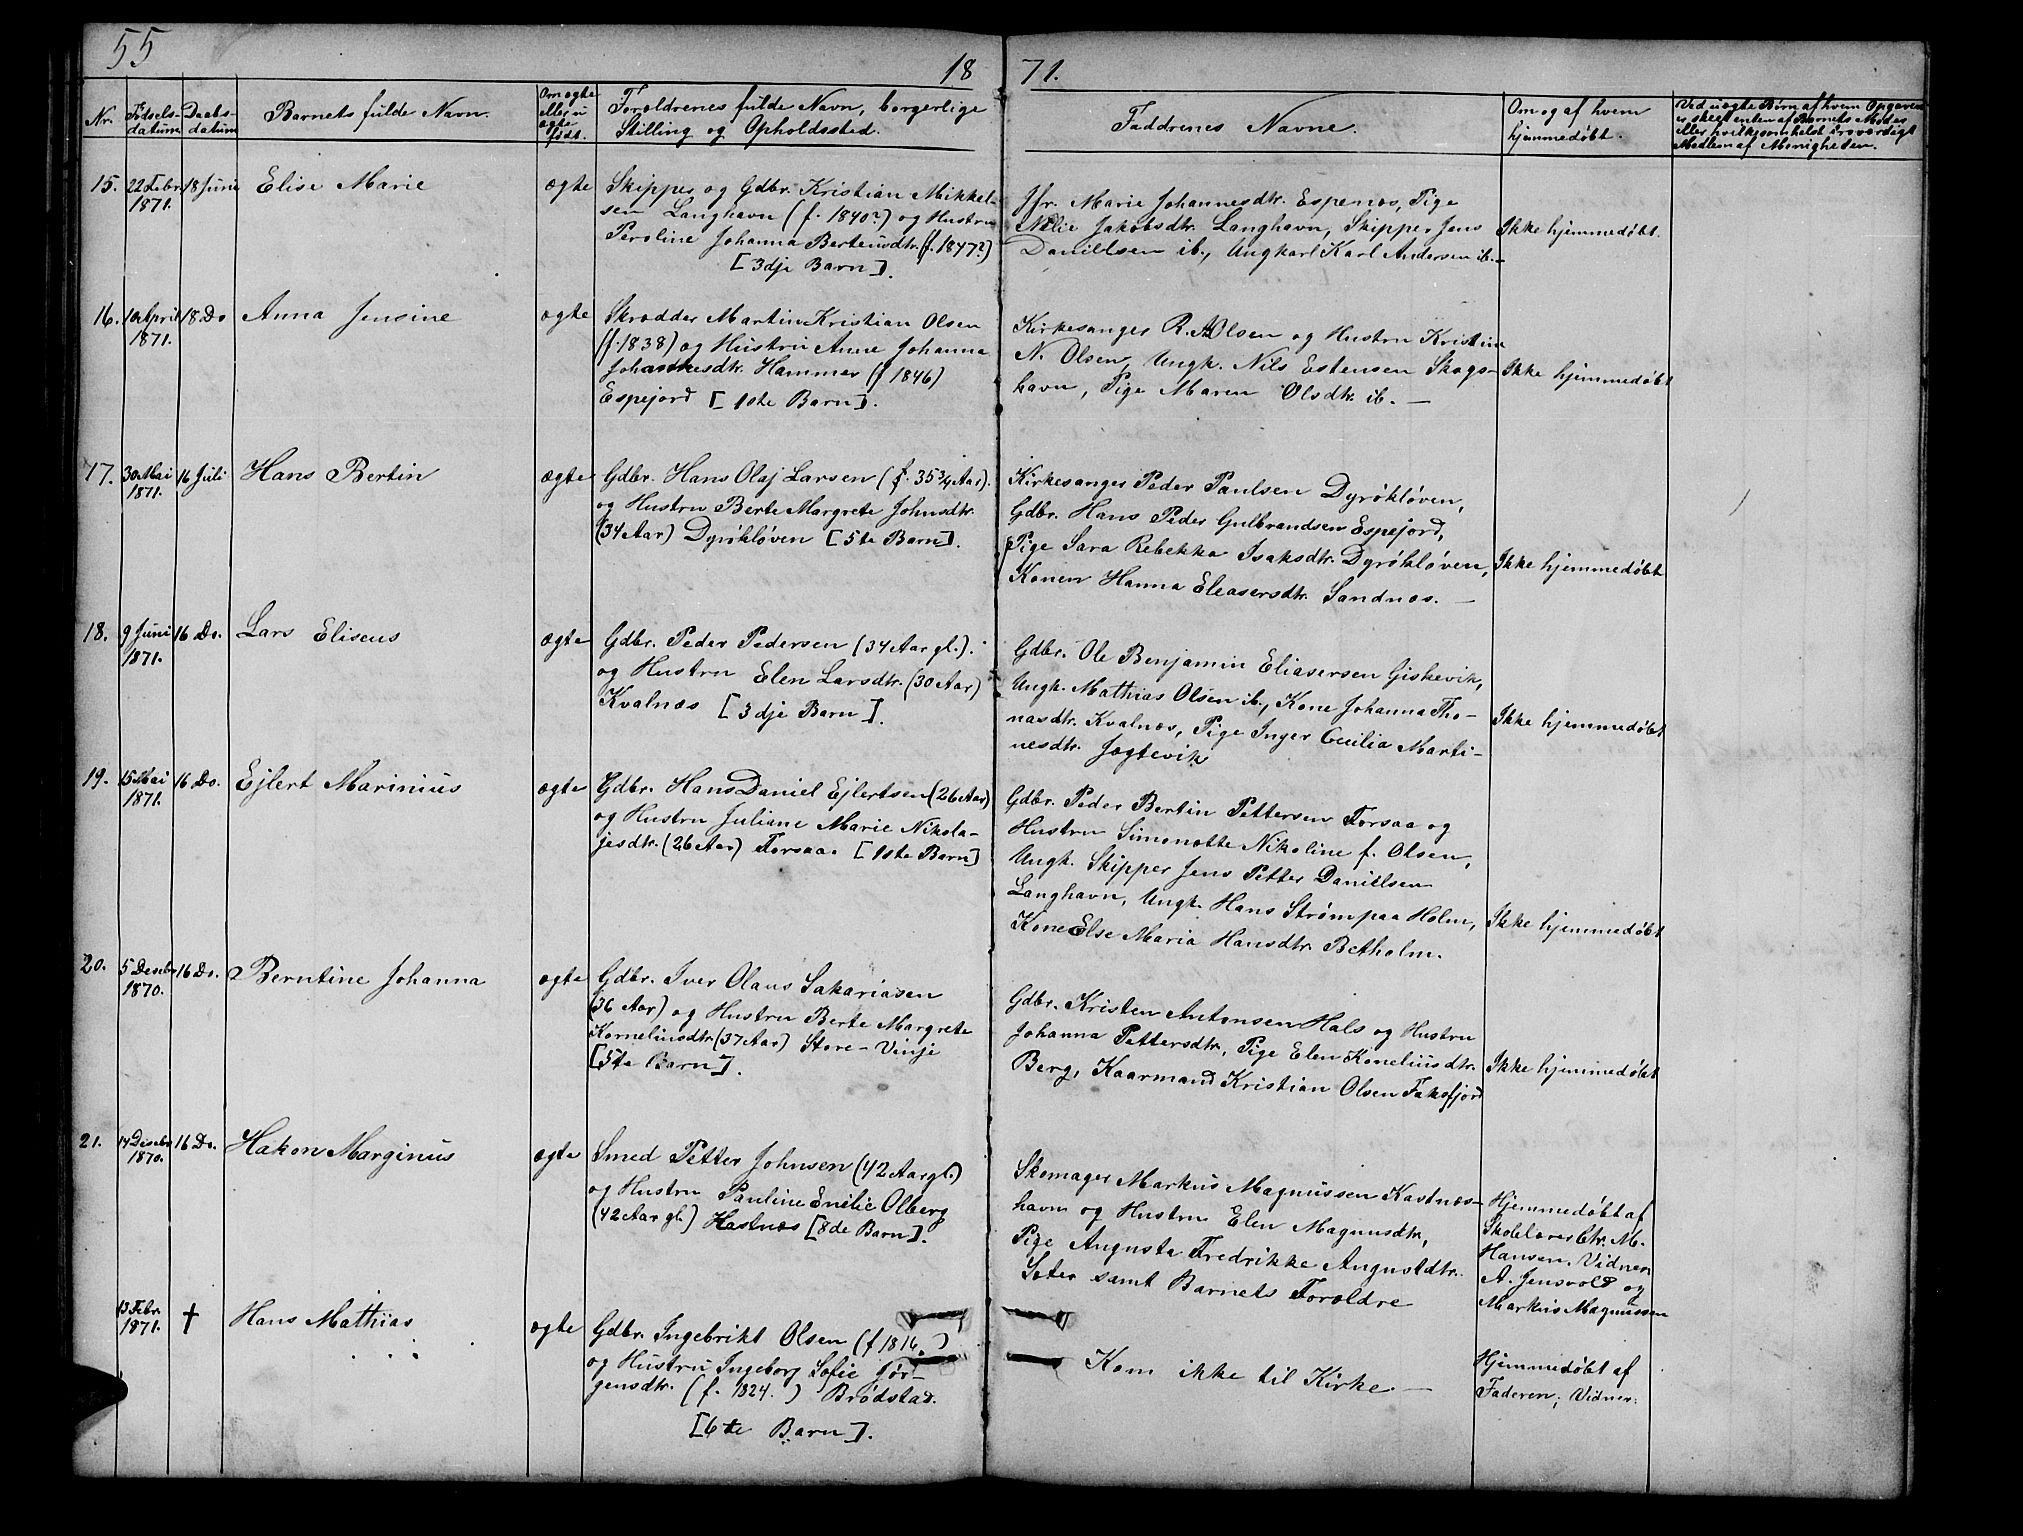 55
18 71.
Nr.
Fødsels-
datum
Daabs-
datum
Barnets fulde Navn.
Om ægte
eller u
ægte
født.
Forældrenes fulde Navn, borgerlige
Stilling og Opholdssted.
Faddrenes Navne.
Om og af hvem
hjemmedøbt.
Ved uægte Børn af hvem Opgaven
er skeet enten af Barnets Moder
eller hvilketsomhelst troværdigt
Medlem af Menigheden.
15.
22 Febr.
1871.
18 Juni
Elise Marie
ægte
Skipper og Gdbr. Kristian Mikkel-
sen Langhavn (f. 1840?) og Hustru
Peroline Johanna Berteusdtr. (f. 1847?)
[3dje Barn].
Jfr. Marie Johannesdtr. Espenæs, Pige
Jakobsdtr. Langhavn, Skipper Jens
Daniellsen ib., Ungkarl Karl Andersen ib.-
Ikke hjemmedøbt.
16.
10 April
1871.
18. Do
Anna Jensine
ægte
Skrædder Martin Kristian Olsen
(f. 1838) og Hustru Anne Johanna
Johannesdtr. Hammer (f 1846)
Espejord [1ste Barn].
Kirkesanger R. A. Olsen og Hustru Kristine
N. Olsen, Ungk. Nils Estensen Skags-
havn, Pige Maren Olsdtr. ib. —
Ikke hjemmedøbt
17.
30 Mai
1871.
16 Juli
Hans Bertin
ægte
Gdbr. Hans Olaj Larsen (f. 35 3/4 Aar).
og Hustru Berte Margrete Johnsdtr.
(34 Aar) Dyrøkløven [5te Barn].
Kirkesanger Peder Paulsen Dyrøkløven,
Gdbr. Hans Peder Gulbrandsen Espejord,
Pige Sara Rebekka Isaksdtr. Dyrøkløven,
Konen Hanna Eleasersdtr. Sandnæs. —
Ikke hjemmedøbt
18.
9 Juni
1871.
16 Do.
Lars Eliseus
ægte
Gdbr. Peder Pedersen (34 Aar gl.).
og Hustru Elen Larsdtr. (30 Aar)
Kvalnæs [3dje Barn].
Gdbr. Ole Benjamin Eliasersen Giskevik,
Ungk. Mathias Olsen ib., Kone Johanna Tho-
nasdtr. Kvalnæs, Pige Inger Cecilia Marti-
nesdtr. Jægtevik
Ikke hjemmedøbt
19.
15 Mai
1871.
16 Do.
Ejlert Marinius
ægte
Gdbr. Hans Daniel Ejlertsen (26 Aar)
og Hustru Juliane Marie Nikola-
jesdtr. (26 Aar) Forsaa. [1ste Barn]
Gdbr. Peder Bertin Pettersen Forsaa og
Hustru Simonette Nikoline f. Olsen,
Ungk. Skipper Jens Petter Daniellsen
Langhavn, Ungk. Hans Strømpaa Holm,
Kone Else Maria Hansdtr. Betholm.
Ikke hjemmedøbt
20.
5 Desebr
1870.
16 Do.
Berntine Johanna
ægte
Gdbr. Iver Olaus Sakariasen
(36 Aar) og Hustru Berte Margrete
Kornelinsdtr. (37 Aar) Store-Vinje
[5te Barn].
Gdbr. Kristen Antonsen Hals og Hustru
Johanna Pettersdtr, Pige Elen Koneliusdtr.
Berg, Kaarmand Kristian Olsen Faksfjord
Ikke hjemmedøbt
21.
14 Desebr
1870.
16 Do.
Hakon Marginius
ægte
Smed Petter Johnsen (42 Aar gl.)
og Hustru Pauline Emilie Olberg
(42 Aar gl.) Kastnæs [8de Barn].
Skomager Markus Magnussen Kastnæs-
havn og Hustru Elen Magnusdtr,
Pige Augusta Fredrikke Augustdtr.
Seter samt Barnets Forældre
Hjemmedøbt af
Skolelærer Chr. M.
Hansen. Vidner
A. Jensvold og
Markus Magnussen
13 Febr.
1871.
†
Hans Mathias
ægte
Gdbr. Ingebrikt Olsen (f 1816.)
og Hustru Ingeborg Sofie Jør-
gensdtr. (f. 1824.) Brødstad.
[6te Barn].
Kom ikke til Kirke. —
Hjemmedøbt af
Faderen; Vidner: